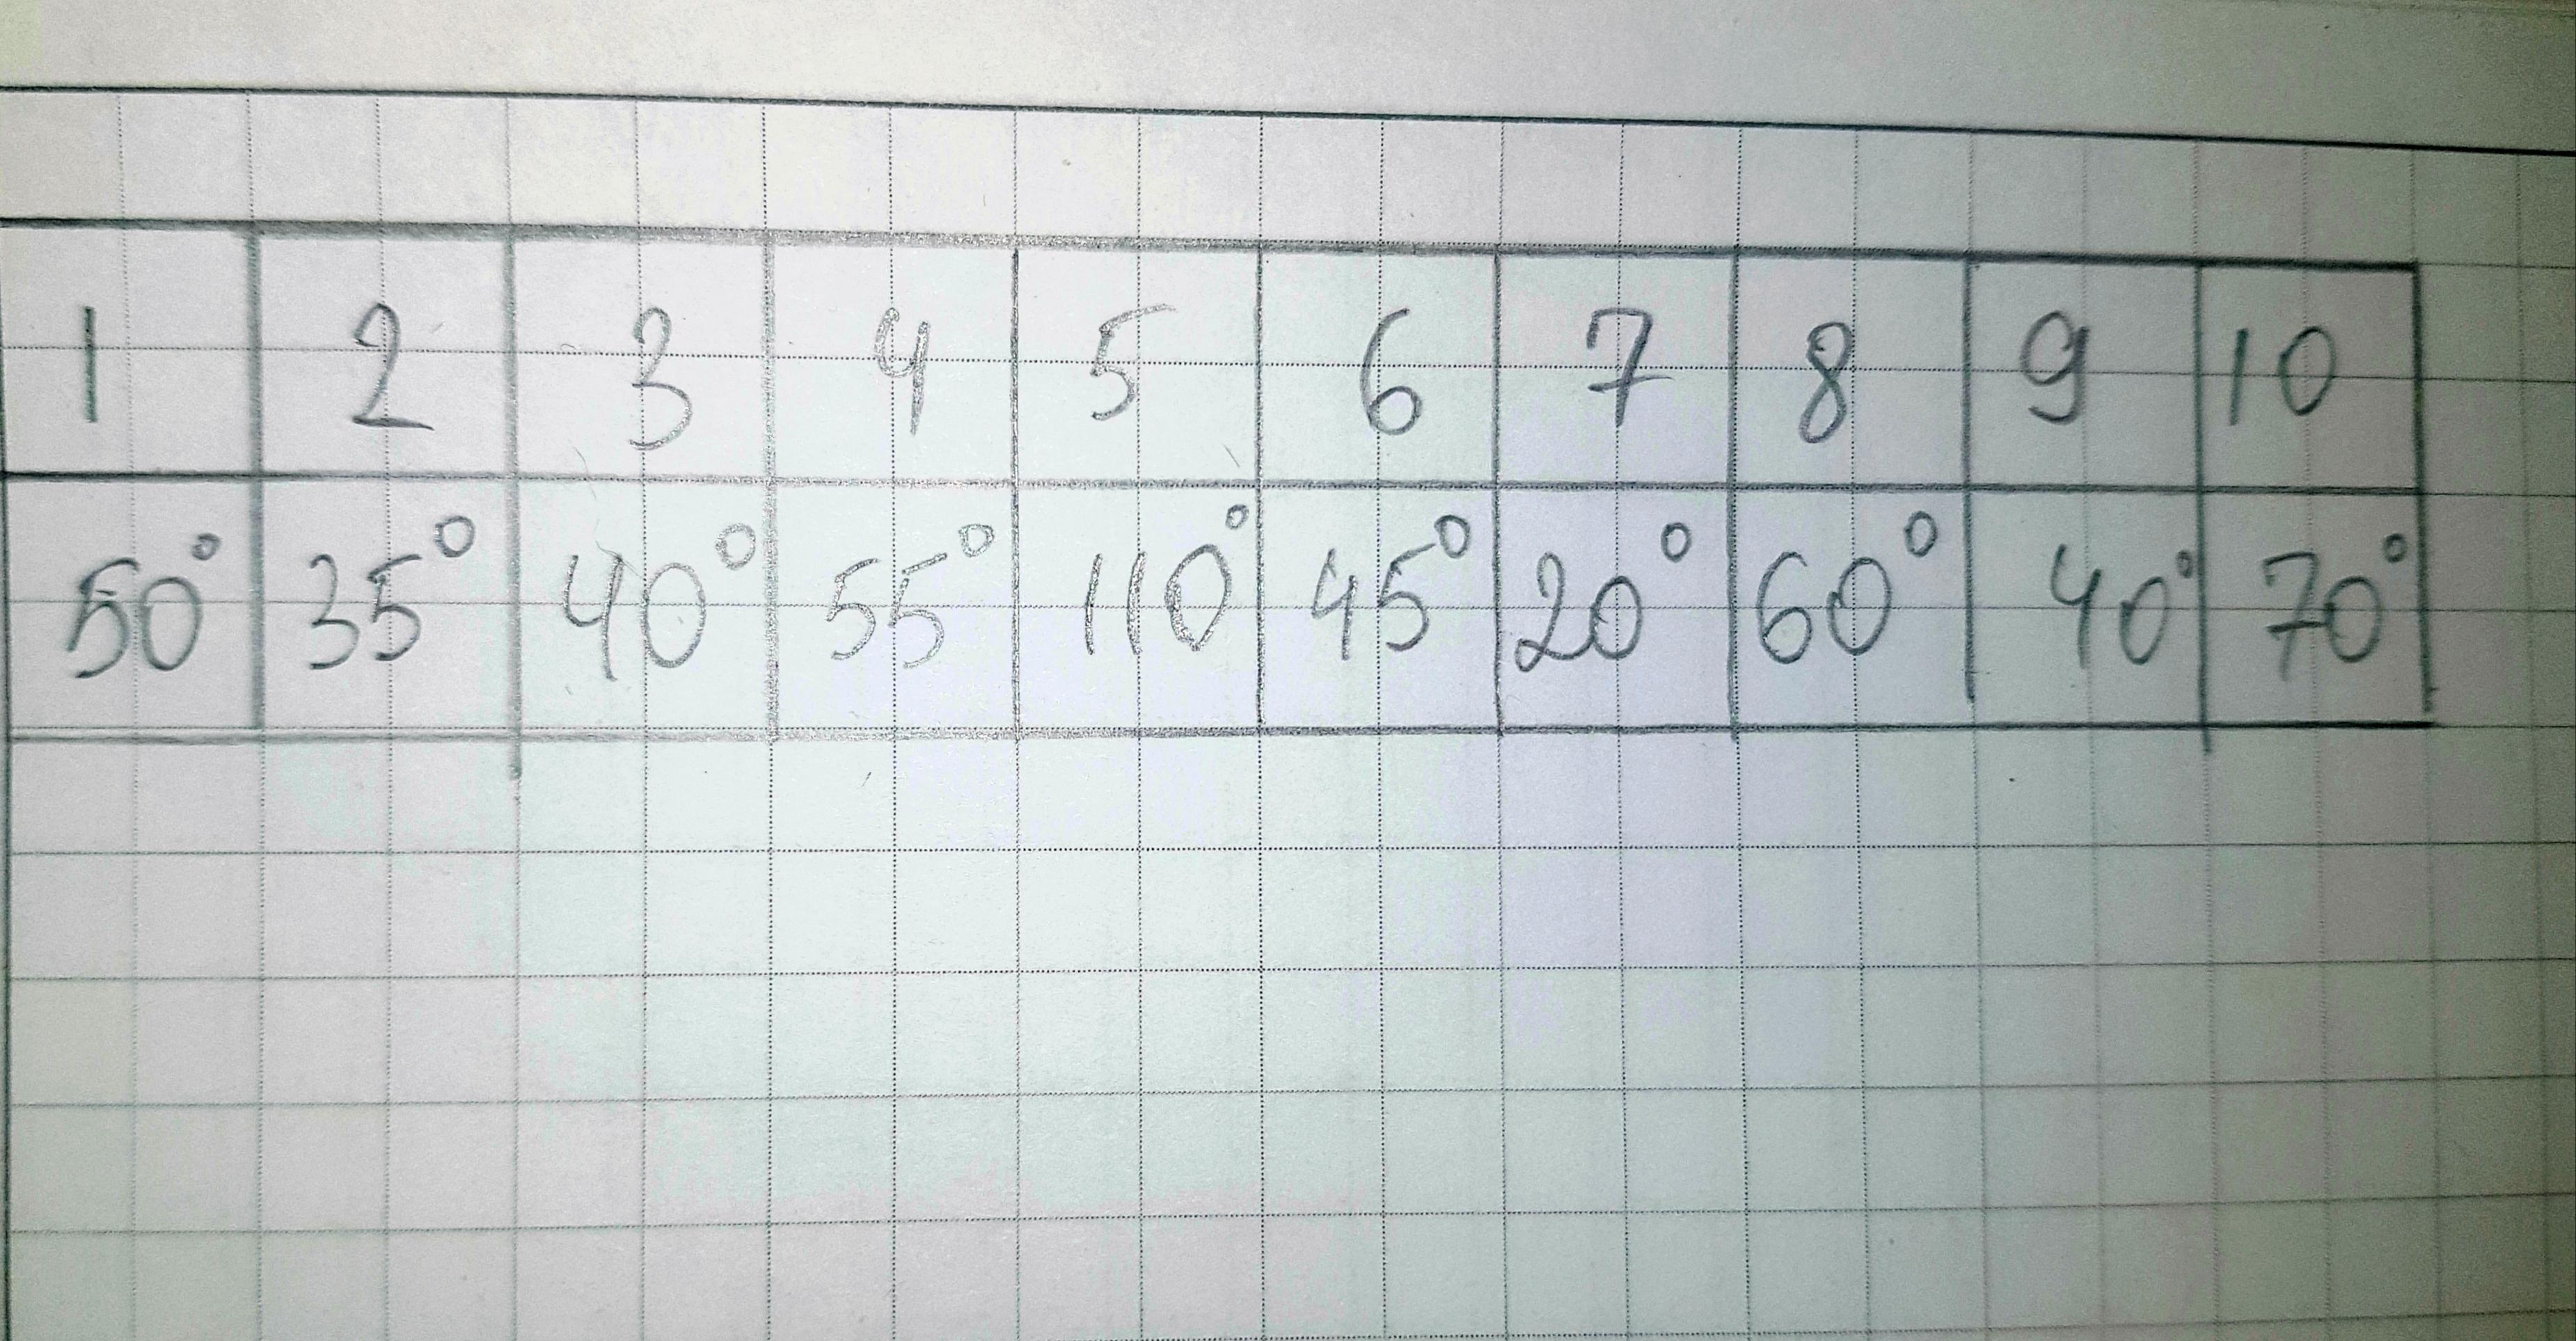 1 2 3 4 5 6 7 8 9 10
50° 35° 40° 55° 110° 45° 20° 60° 40° 70°